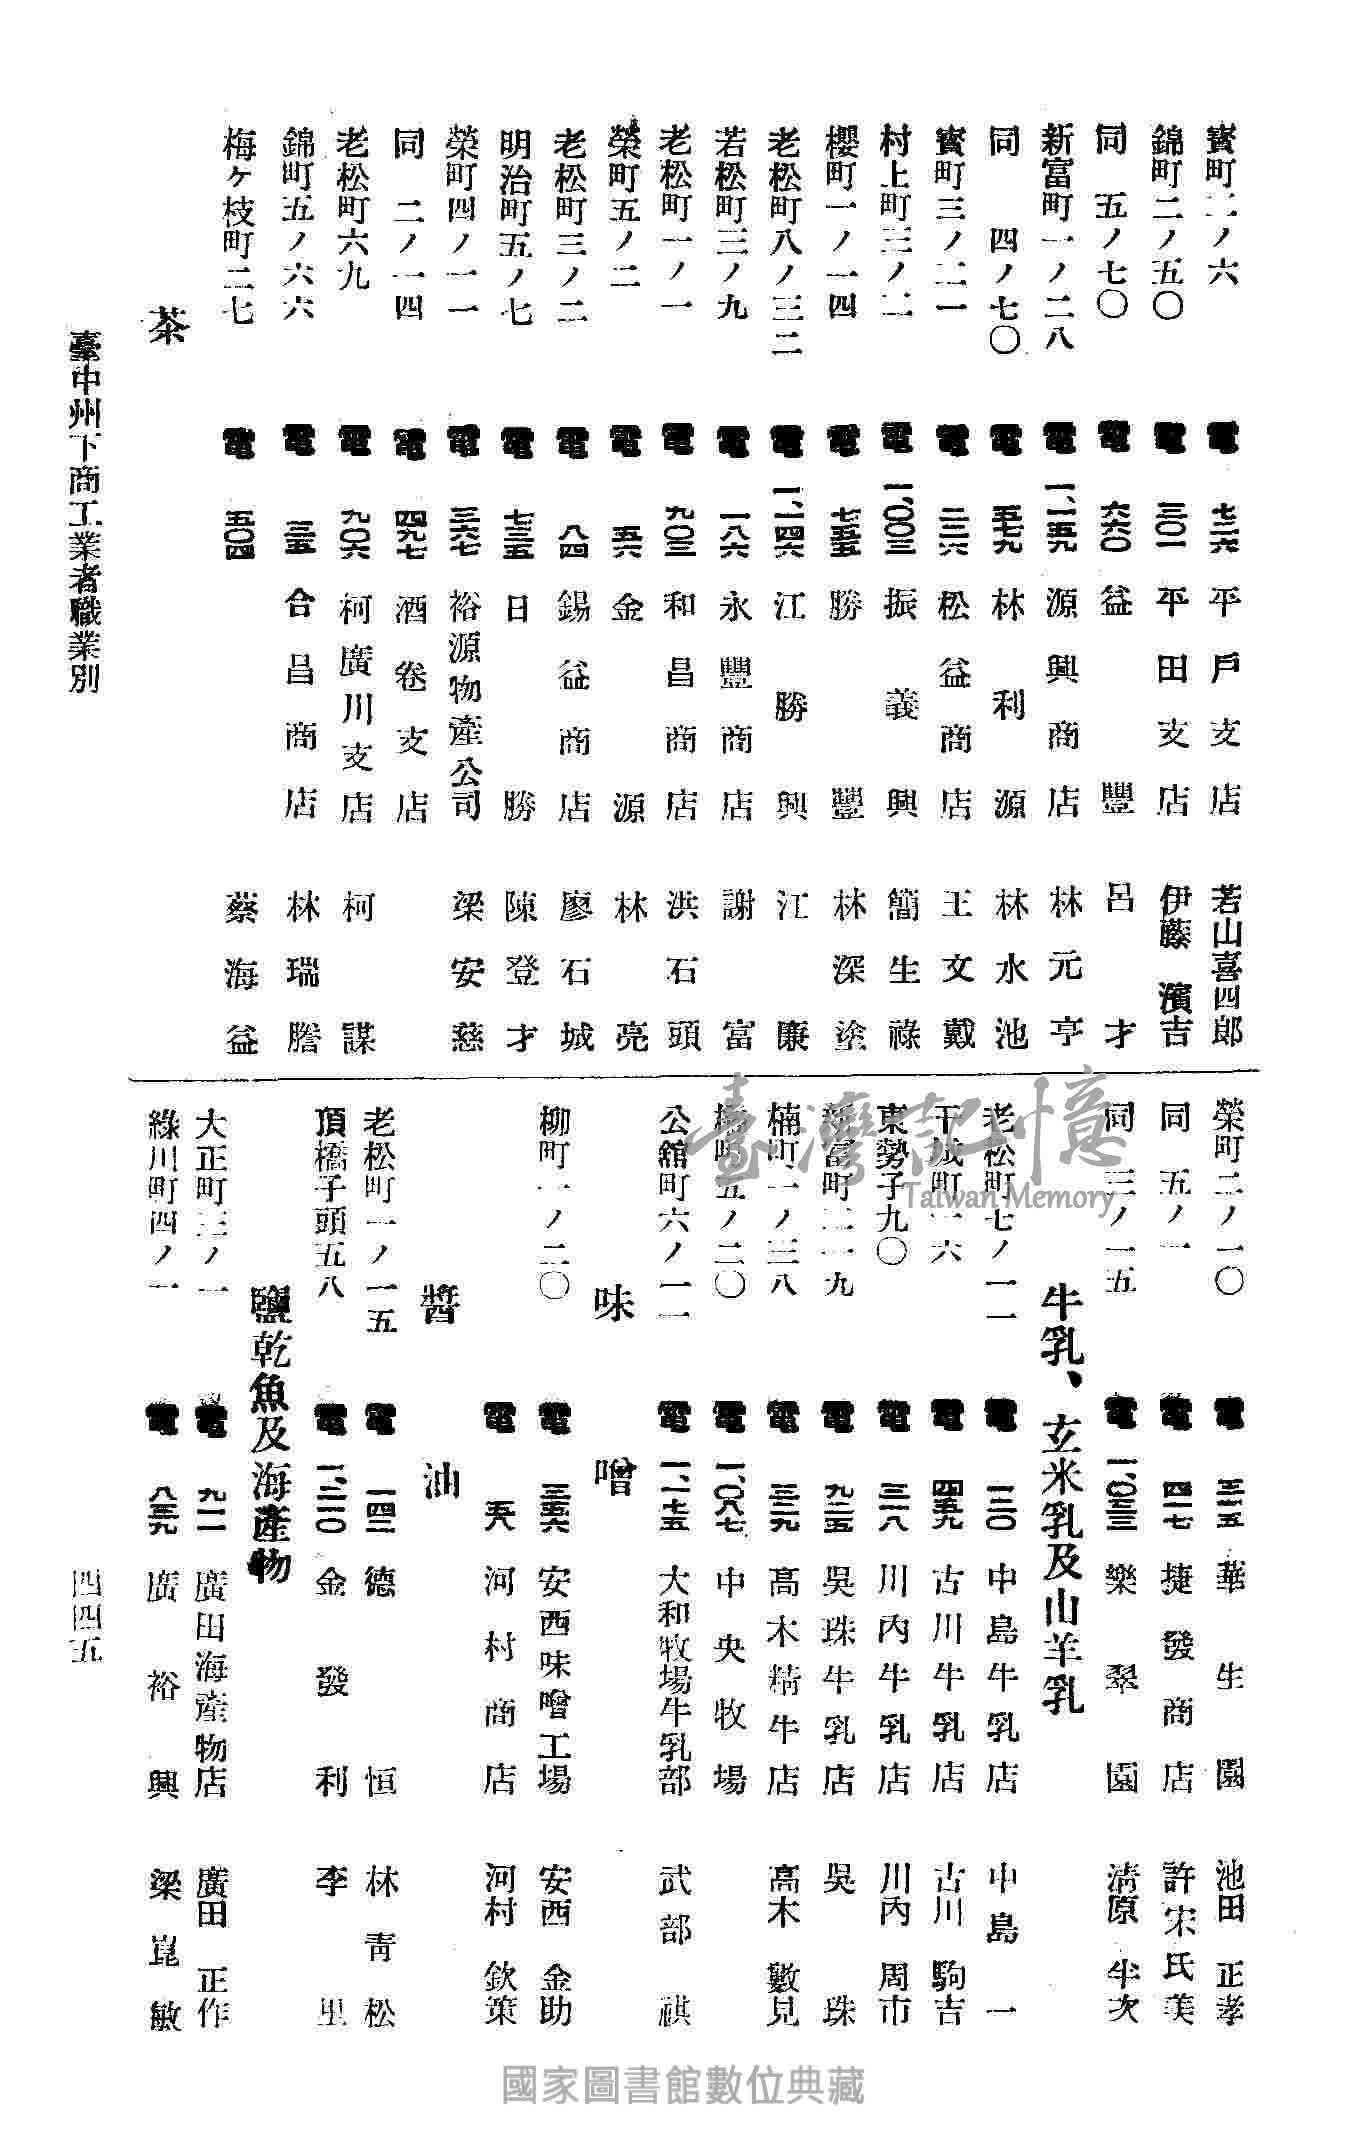 寶町二ノ六 電 七二六 平戶支店 若山喜四郎
錦町二ノ五〇 電 三〇一 平田支店 伊藤濱吉
同 五ノ七〇 電 六六〇 益豐 呂才
新富町一ノ二八 電 一、一五九 源興商店 林元亨
同 四ノ七〇 電 五七九 林利源 林水池
寳町三ノ二一 電 二二六 松益商店 王文戴
村上町三ノ二 電 一、〇〇三 振義興 簡生祿
櫻町一ノ一四 電 七五五 勝豐 林深塗
老松町八ノ三二 電 一、一四六 江勝興 江廉
若松町三ノ九 電 一八六 永豐商店 謝富
老松町一ノ一 電 九〇三 和昌商店 洪石頭
榮町五ノ二 電 五六 金源 林亮
老松町三ノ二 電 八四 錫益商店 廖石城
明治町五ノ七 電 七三五 日勝 陳登才
榮町四ノ一一 電 三六七 裕源物產公司 梁安慈
同 二ノ一四 電 四九七 酒卷支店
老松町六九 電 九〇六 柯廣川支店 柯謀
錦町五ノ六六 電 三五 合昌商店 林瑞謄
梅ヶ枝町二七 電 五〇四 蔡海益
茶
榮町二ノ一〇 電 三一五 華生園 池田正孝
同 五ノ一 電 四一七 捷發商店 許宋氏美
同 三ノ一五 電 一、〇三三 樂翠園 清原半次
牛乳、玄米乳及山羊乳
老松町七ノ一一 電 一二〇 中島牛乳店 中島一
干城町一六 電 四五九 古川牛乳店 古川駒吉
東勢子九〇 電 三一八 川內牛乳店 川內周市
新富町二一九 電 九二五 吳珠牛乳店 吳珠
楠町一ノ三八 電 三二九 高木精牛店 高木數見
橘町五ノ二〇 電 一、〇八七 中央牧場
公館町六ノ一一 電 一、一七五 大和牧場牛乳部 武部祺
味噌
柳町一ノ二〇 電 三五六 安西味噌工場 安西金助
電 五八 河村商店 河村欽策
醬油
老松町一ノ一五 電 一四二 德恒 林靑松
頂橋子頭五八 電 一、二一〇 金發利 李里
鹽乾魚及海產物
大正町三ノ一 電 九一一 廣田海產物店 廣田正作
綠川町四ノ一 電 八三九 廣裕興 梁崑敏
臺中州下商工業者職業別
四四五
臺灣記憶
Taiwan Memory
國家圖書館數位典藏